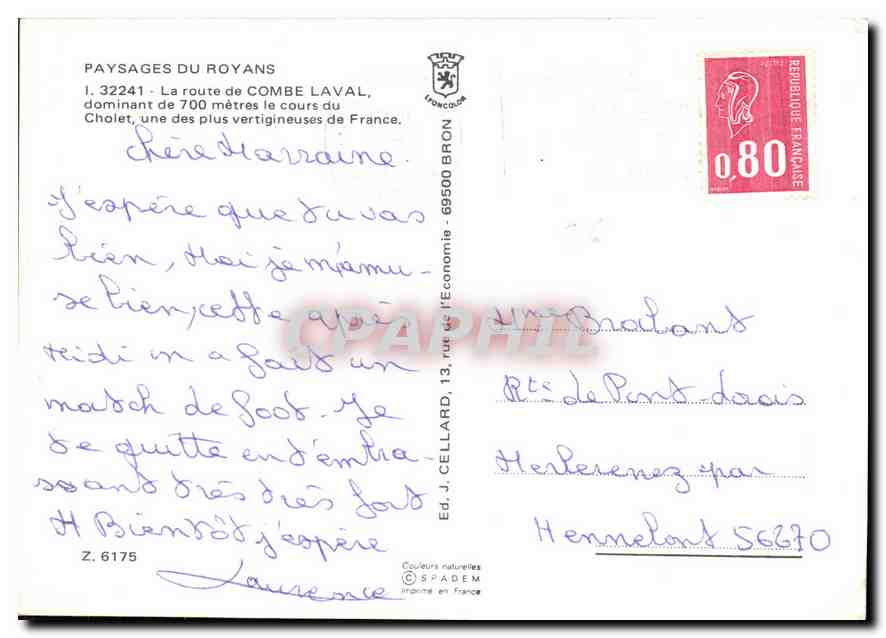 PAYSAGES DU ROYANS
I. 32241 - La route de COMBE LAVAL,
dominant de 700 mètres le cours du
Cholet, une des plus vertigineuses de France.
chère Marraine.
J'espère que tu vas
bien, Moi je m'amu-
se bien, cette après
Midi on a fait un
match de foot. Je
te quitte en t'embra-
ssant très très fort
A Bientôt j'espère
Laurence
Z. 6175
Couleurs naturelles
© SPADEM
Imprimé en France
LYONCOLOR
Ed. J. CELLARD, 13, rue de l'Economie - 69500 BRON
REPUBLIQUE FRANÇAISE
0,80
Mme Brabant
Rte de Pont
par
Hennebont 56670
CPAPHIL